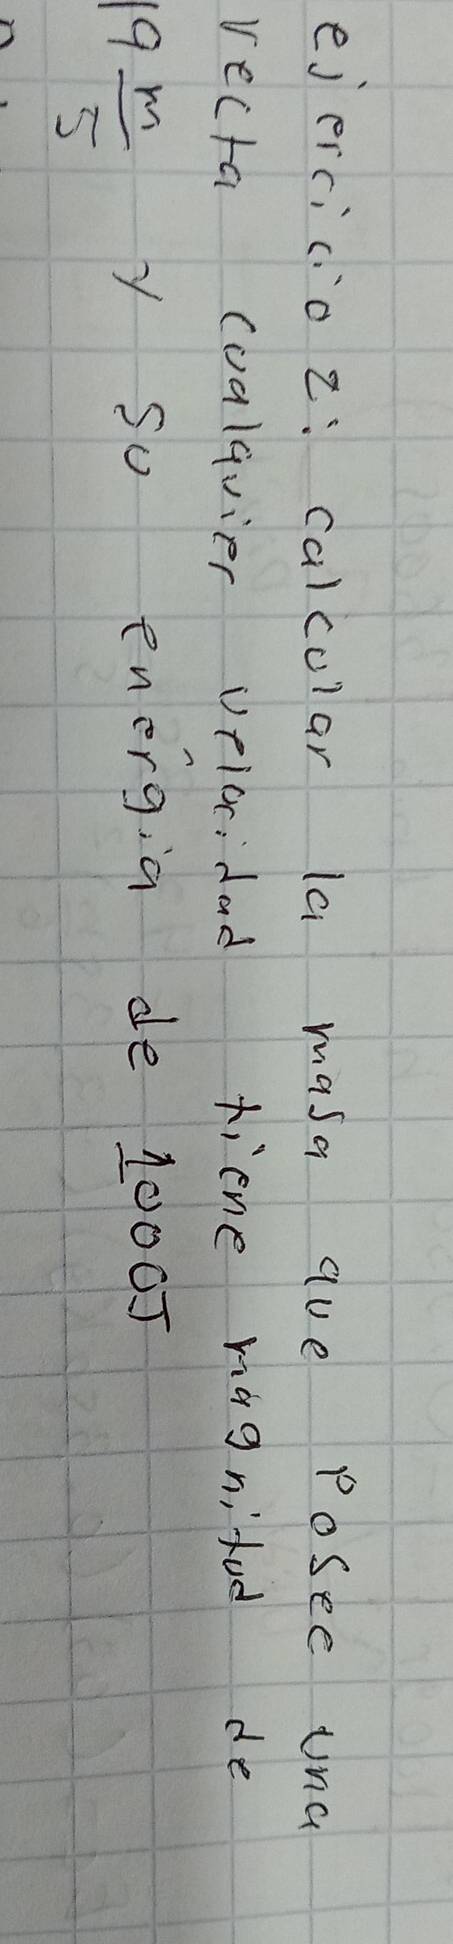 ejercicio 2: calcular la masa que posee una
recta cualquier velocidad tiene magnitud de
19 m/s y su energía de 1000J